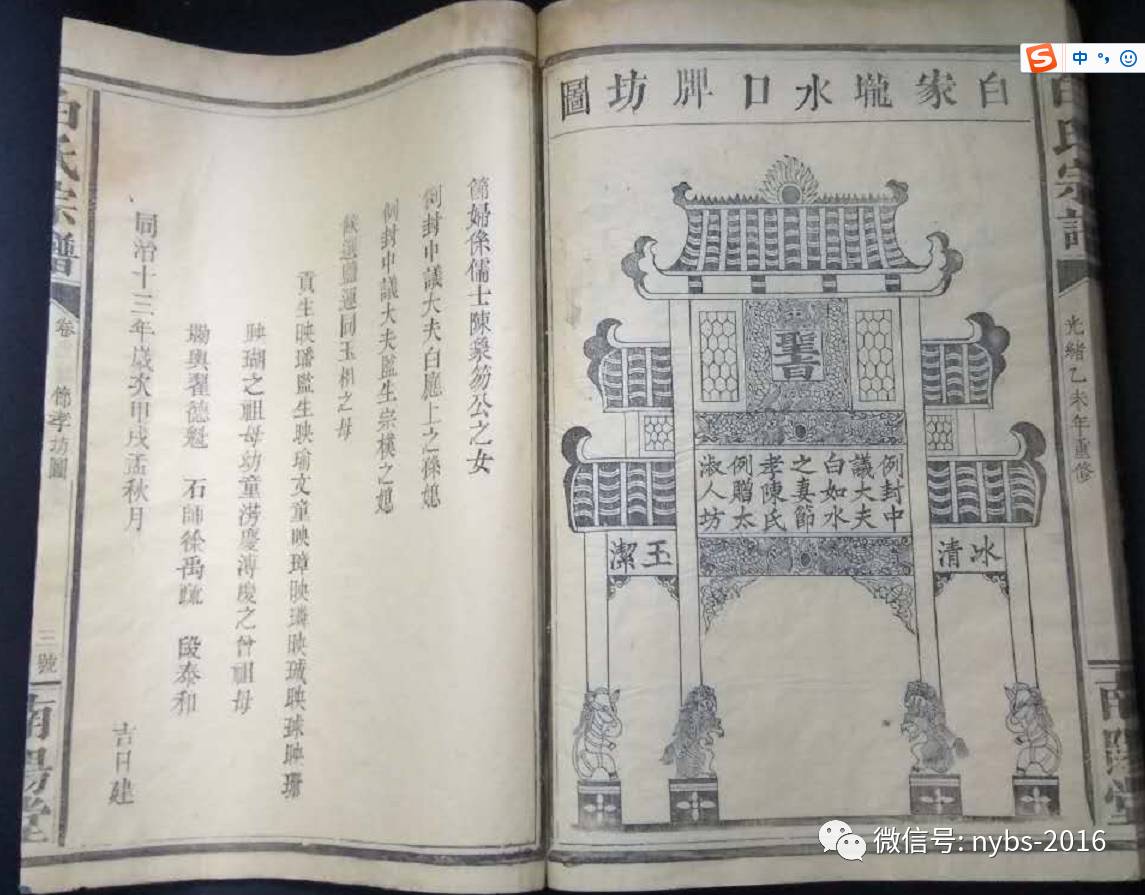 白家壠水口牌坊圖
聖旨
例封中
議大夫
白如水
之妻節
孝陳氏
例贈太
淑人坊
冰清
玉潔
光緒乙未年重修
南陽堂
節婦係儒士陳彔笏公之女
例封中議大夫白應上之孫媳
例封中議大夫監生宗樸之媳
候選鹽運同玉相之母
貢生映璠監生映瑜文童映璋映璘映瑊映球映珊
映瑚之祖母幼童澇慶溥慶之曾祖母
石師徐禹疏 段泰和
同治十三年歲次甲戌孟秋月
吉日建
白氏宗譜
卷
節孝坊圖
三號
南陽堂
中
微信号: nybs-2016